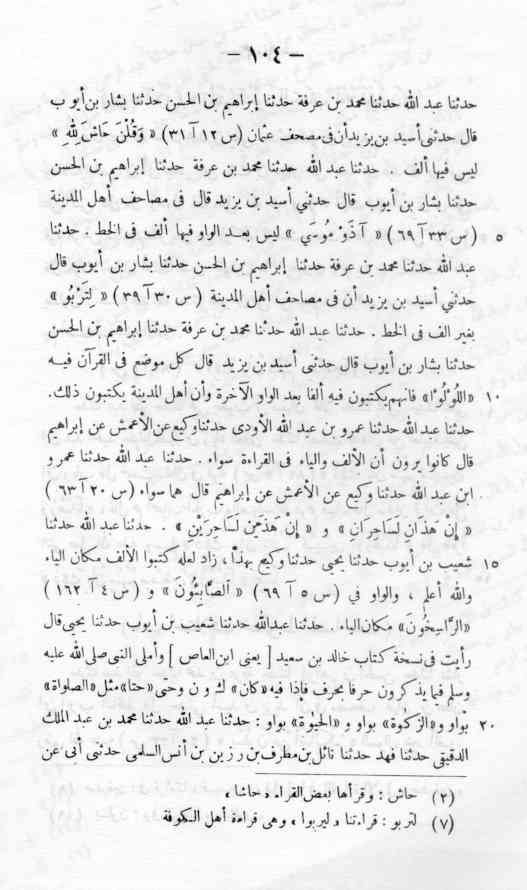 – ١٠٤ –
حدثنا عبد الله حدثنا محمد بن عرفة حدثنا إبراهيم بن الحسن حدثنا بشار بن أيوب
قال حدثنى أسيد بن يزيد أن فى مصحف عثمان (س ١٢ آ ٣١) « وَقُلْنَ حَاشَ لِلّٰهِ »
ليس فيها ألف . حدثنا عبد الله حدثنا محمد بن عرفة حدثنا إبراهيم بن الحسن
حدثنا بشار بن أيوب قال حدثني أسيد بن يزيد قال فى مصاحف أهل المدينة
(س ٣٣ آ ٦٩) « آذَوْ مُوسَي » ليس بعد الواو فيها ألف فى الخط . حدثنا ٥
عبد الله حدثنا محمد بن عرفة حدثنا إبراهيم بن الحسن حدثنا بشار بن أيوب قال
حدثني أسيد بن يزيد أن فى مصاحف أهل المدينة (س ٣٠ آ ٣٩) « لِتَرْبُو »
بغير الف فى الخط . حدثنا عبد الله حدثنا محمد بن عرفة حدثنا إبراهيم بن الحسن
حدثنا بشار بن أيوب قال حدثنى أسيد بن يزيد قال كل موضع فى القرآن فيه
«اللُوْلُوْا» فانهم يكتبون فيه ألفا بعد الواو الآخرة وأن أهل المدينة يكتبون ذلك. ١٠
حدثنا عبد الله حدثنا عمرو بن عبد الله الأودى حدثنا وكيع عن الأعمش عن إبراهيم
قال كانوا يرون أن الألف والياء فى القراءة سواء . حدثنا عبد الله حدثنا عمرو
ابن عبد الله حدثنا وكيع عن الأعمش عن إبراهيم قال هما سواء (س ٢٠ آ ٦٣)
« إِنْ هَذَانِ لَسَاحِرَانِ » و « إِنْ هَذَيْنِ لَسَاحِرَيْنِ » . حدثنا عبد الله حدثنا
شعيب بن أيوب حدثنا يحيى حدثنا وكيع بهذا، زاد لعله كتبوا الألف مكان الياء ١٥
والله أعلم ، والواو في (س ٥ آ ٦٩) « الصَّابِئُونَ » و (س ٤ آ ١٦٢)
«الرَّاسِخُونَ» مكان الياء . حدثنا عبدالله حدثنا شعيب بن أيوب حدثنا يحيى قال
رأيت فى نسخة كتاب خالد بن سعيد [ يعنى ابن العاص ] وأملى النبى صلى الله عليه
وسلم فيما يذكرون حرفا بحرف فإذا فيه «كان» ك و ن وحتى «حتا» مثل «الصلواة»
بواو و«الزكوة» بواو و «الحيوة» بواو : حدثنا عبد الله حدثنا محمد بن عبد الملك ٢٠
الدقيقى حدثنا فهد حدثنا نائل بن مطرف بن رزين بن أنس السلمى حدثنى أبى عن
(٢) حاش : وقرأها بعض القراء « حاشا »
(٧) لتربو : قراءتنا « ليربوا » وهى قراءة أهل الكوفة